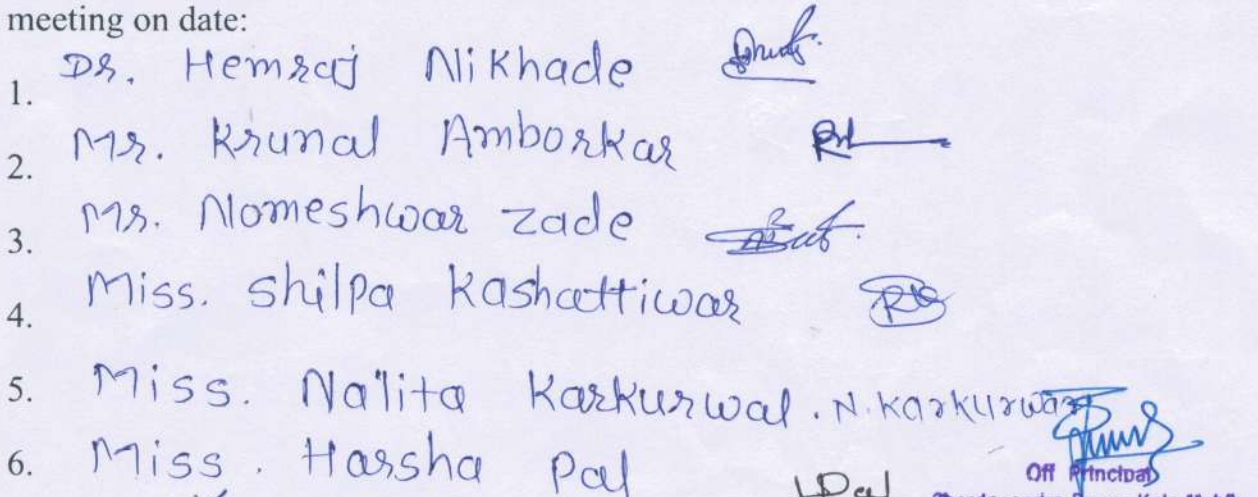 meeting on date:
1. Dr. Hemraj Nikhade
2. Mr. Krunal Amborkar
3. Mr. Nomeshwar Zade
4. Miss. Shilpa Kashattiwar
5. Miss. Nalita Karkurwal. N. Karkurwar
6. Miss. Harsha Pal
Off Principal